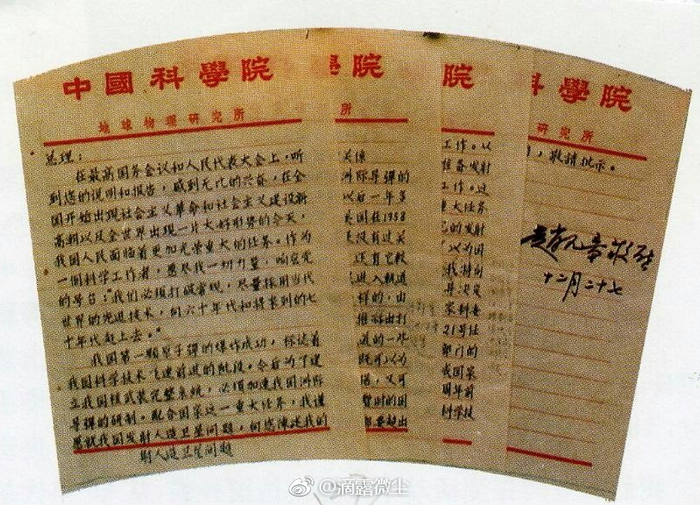 中國科學院
地球物理研究所
总理：
在最高国务会议和人民代表大会上，听
到您的说明和报告，感到无比的兴奋，在全
国开始出现社会主义革命和社会主义建设新
高潮以及全世界出现一片大好形势的今天，
我国人民面临着更加光荣重大的任务。作为
一个科学工作者，要尽我一切力量，响应党
的号召："我们必须打破常规，尽量采用当代
世界的先进技术，向六十年代和将来到的七
十年代赶上去。"
我国第一颗原子弹的爆炸成功，标志着
我国科学技术飞速前进的阶段。今后为了建
立我国核武装完整系统，必须加速我国洲际
导弹的研制。配合国家这一重大任务，我谨
就我国发射人造卫星问题，向您陈述我的
对人造卫星问题
學院
所
关像
洲际导弹的
以后一年多
美国在1958
没有过关
还有它较
进入轨道
样的，由
推源出打
道的一些
既可以为
信，又可
暂时的困
都要超出
學院
工作。以
准备发射
工作。这
重大任务
的发射
以为国
我特别
并决定
家科委
21号址
部门的
我国宗
周年前
科学技
科學院
研究所
，敬请批示。
赵九章敬启
十二月二十七
@滴露微尘